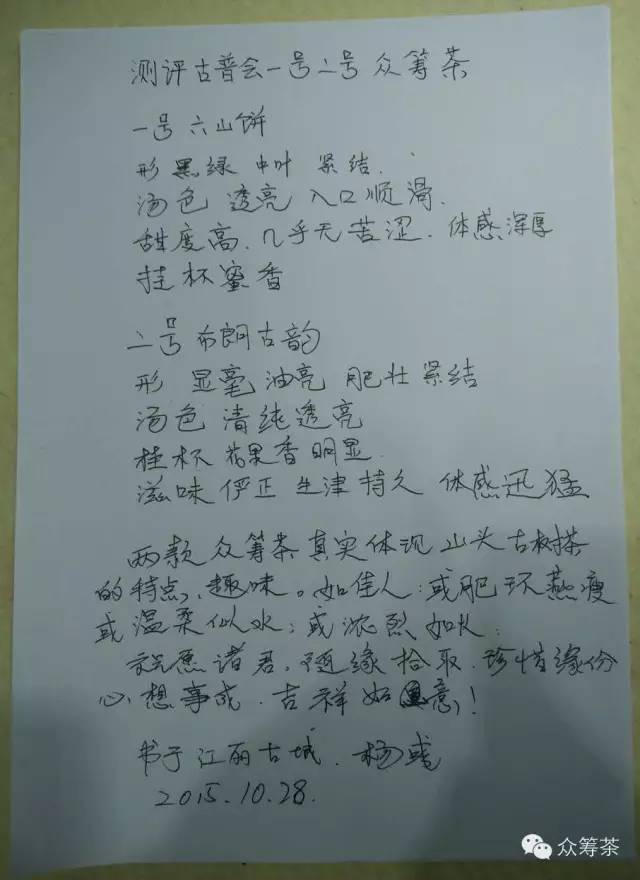 测评古普会一号二号众筹茶
一号 六山饼
形 黑绿 中叶 紧结.
汤色 透亮 入口顺滑.
甜度高.几乎无苦涩.体感深厚
挂杯蜜香
二号 布朗古韵
形 显毫 油亮 肥壮 紧结
汤色 清纯透亮
挂杯 花果香明显.
滋味 俨正 生津持久 体感迅猛
两款众筹茶真实体现山头古树茶
的特点、趣味。如佳人:或肥环燕瘦
或温柔似水;或浓烈如火.
祝愿诸君.随缘拾取.珍惜缘份
心想事成.吉祥如意!
书于江丽古城.杨
2015.10.28.
众筹茶